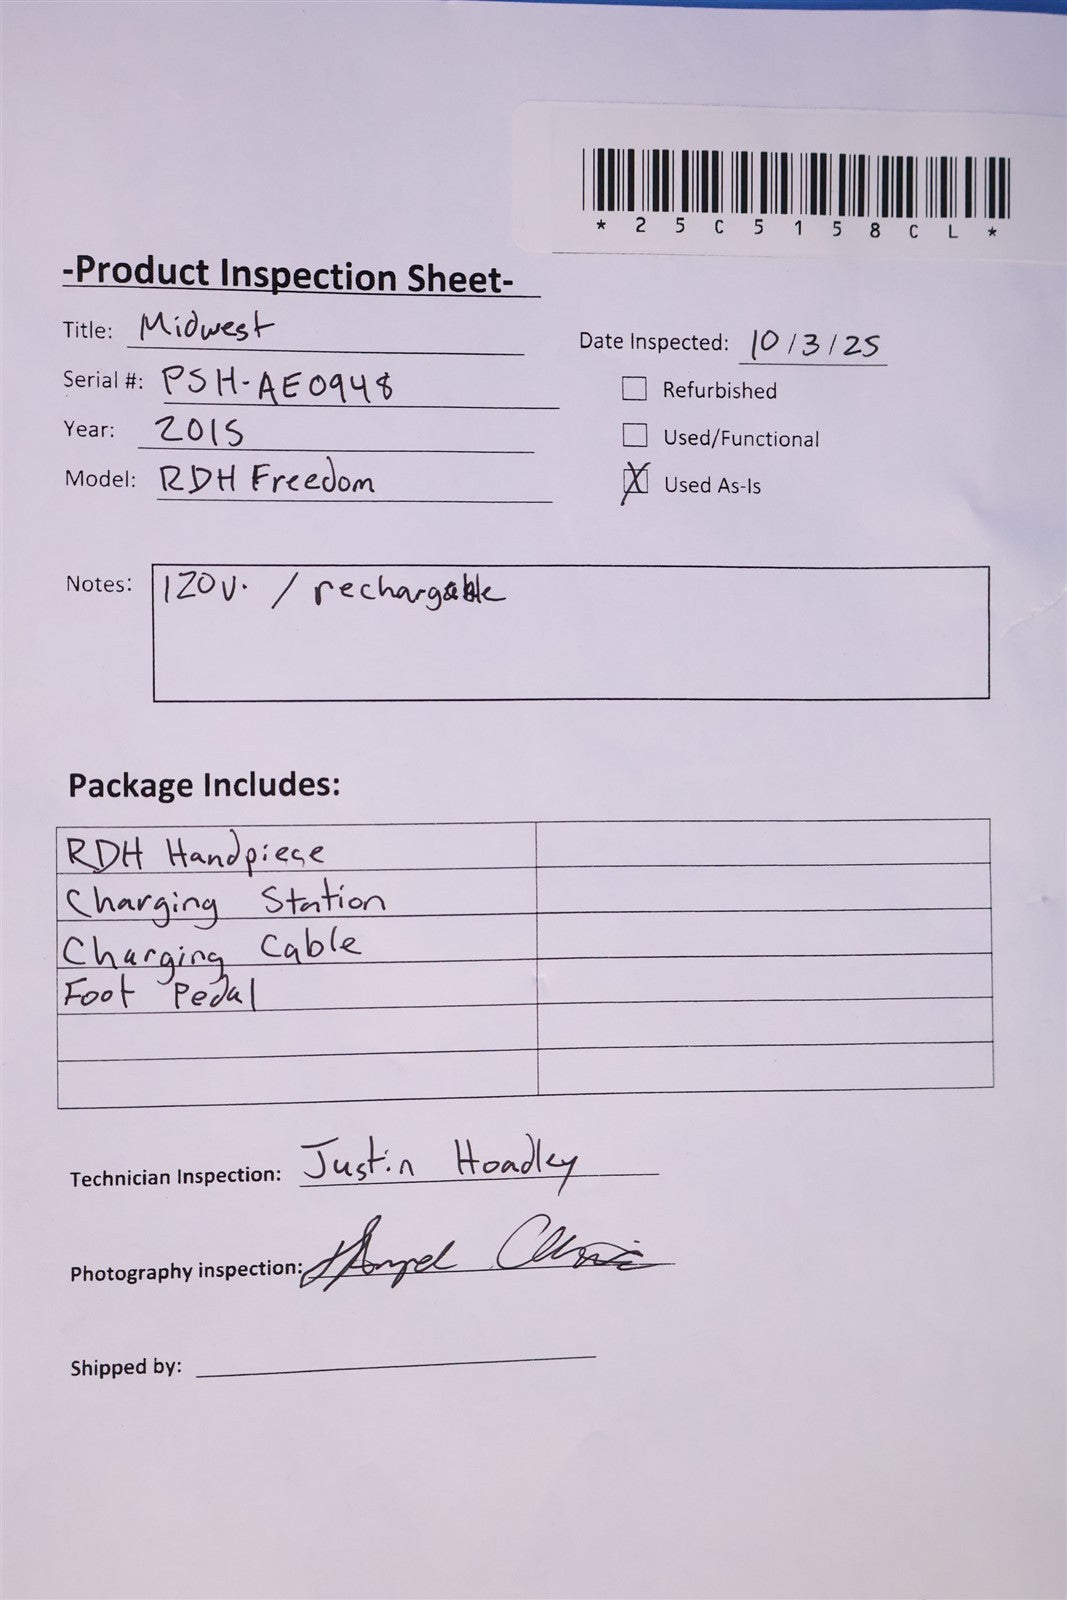 * 2 5 C 5 1 5 8 C L *
-Product Inspection Sheet-
Title: Midwest
Date Inspected: 10/3/25
Serial #: PSH-AE0948
Refurbished
Year: 2015
Used/Functional
Model: RDH Freedom
X Used As-Is
Notes: 120v. / rechargable
Package Includes:
RDH Handpiece
Charging Station
Charging Cable
Foot Pedal
Technician Inspection: Justin Hoadley
Photography inspection:
Shipped by: